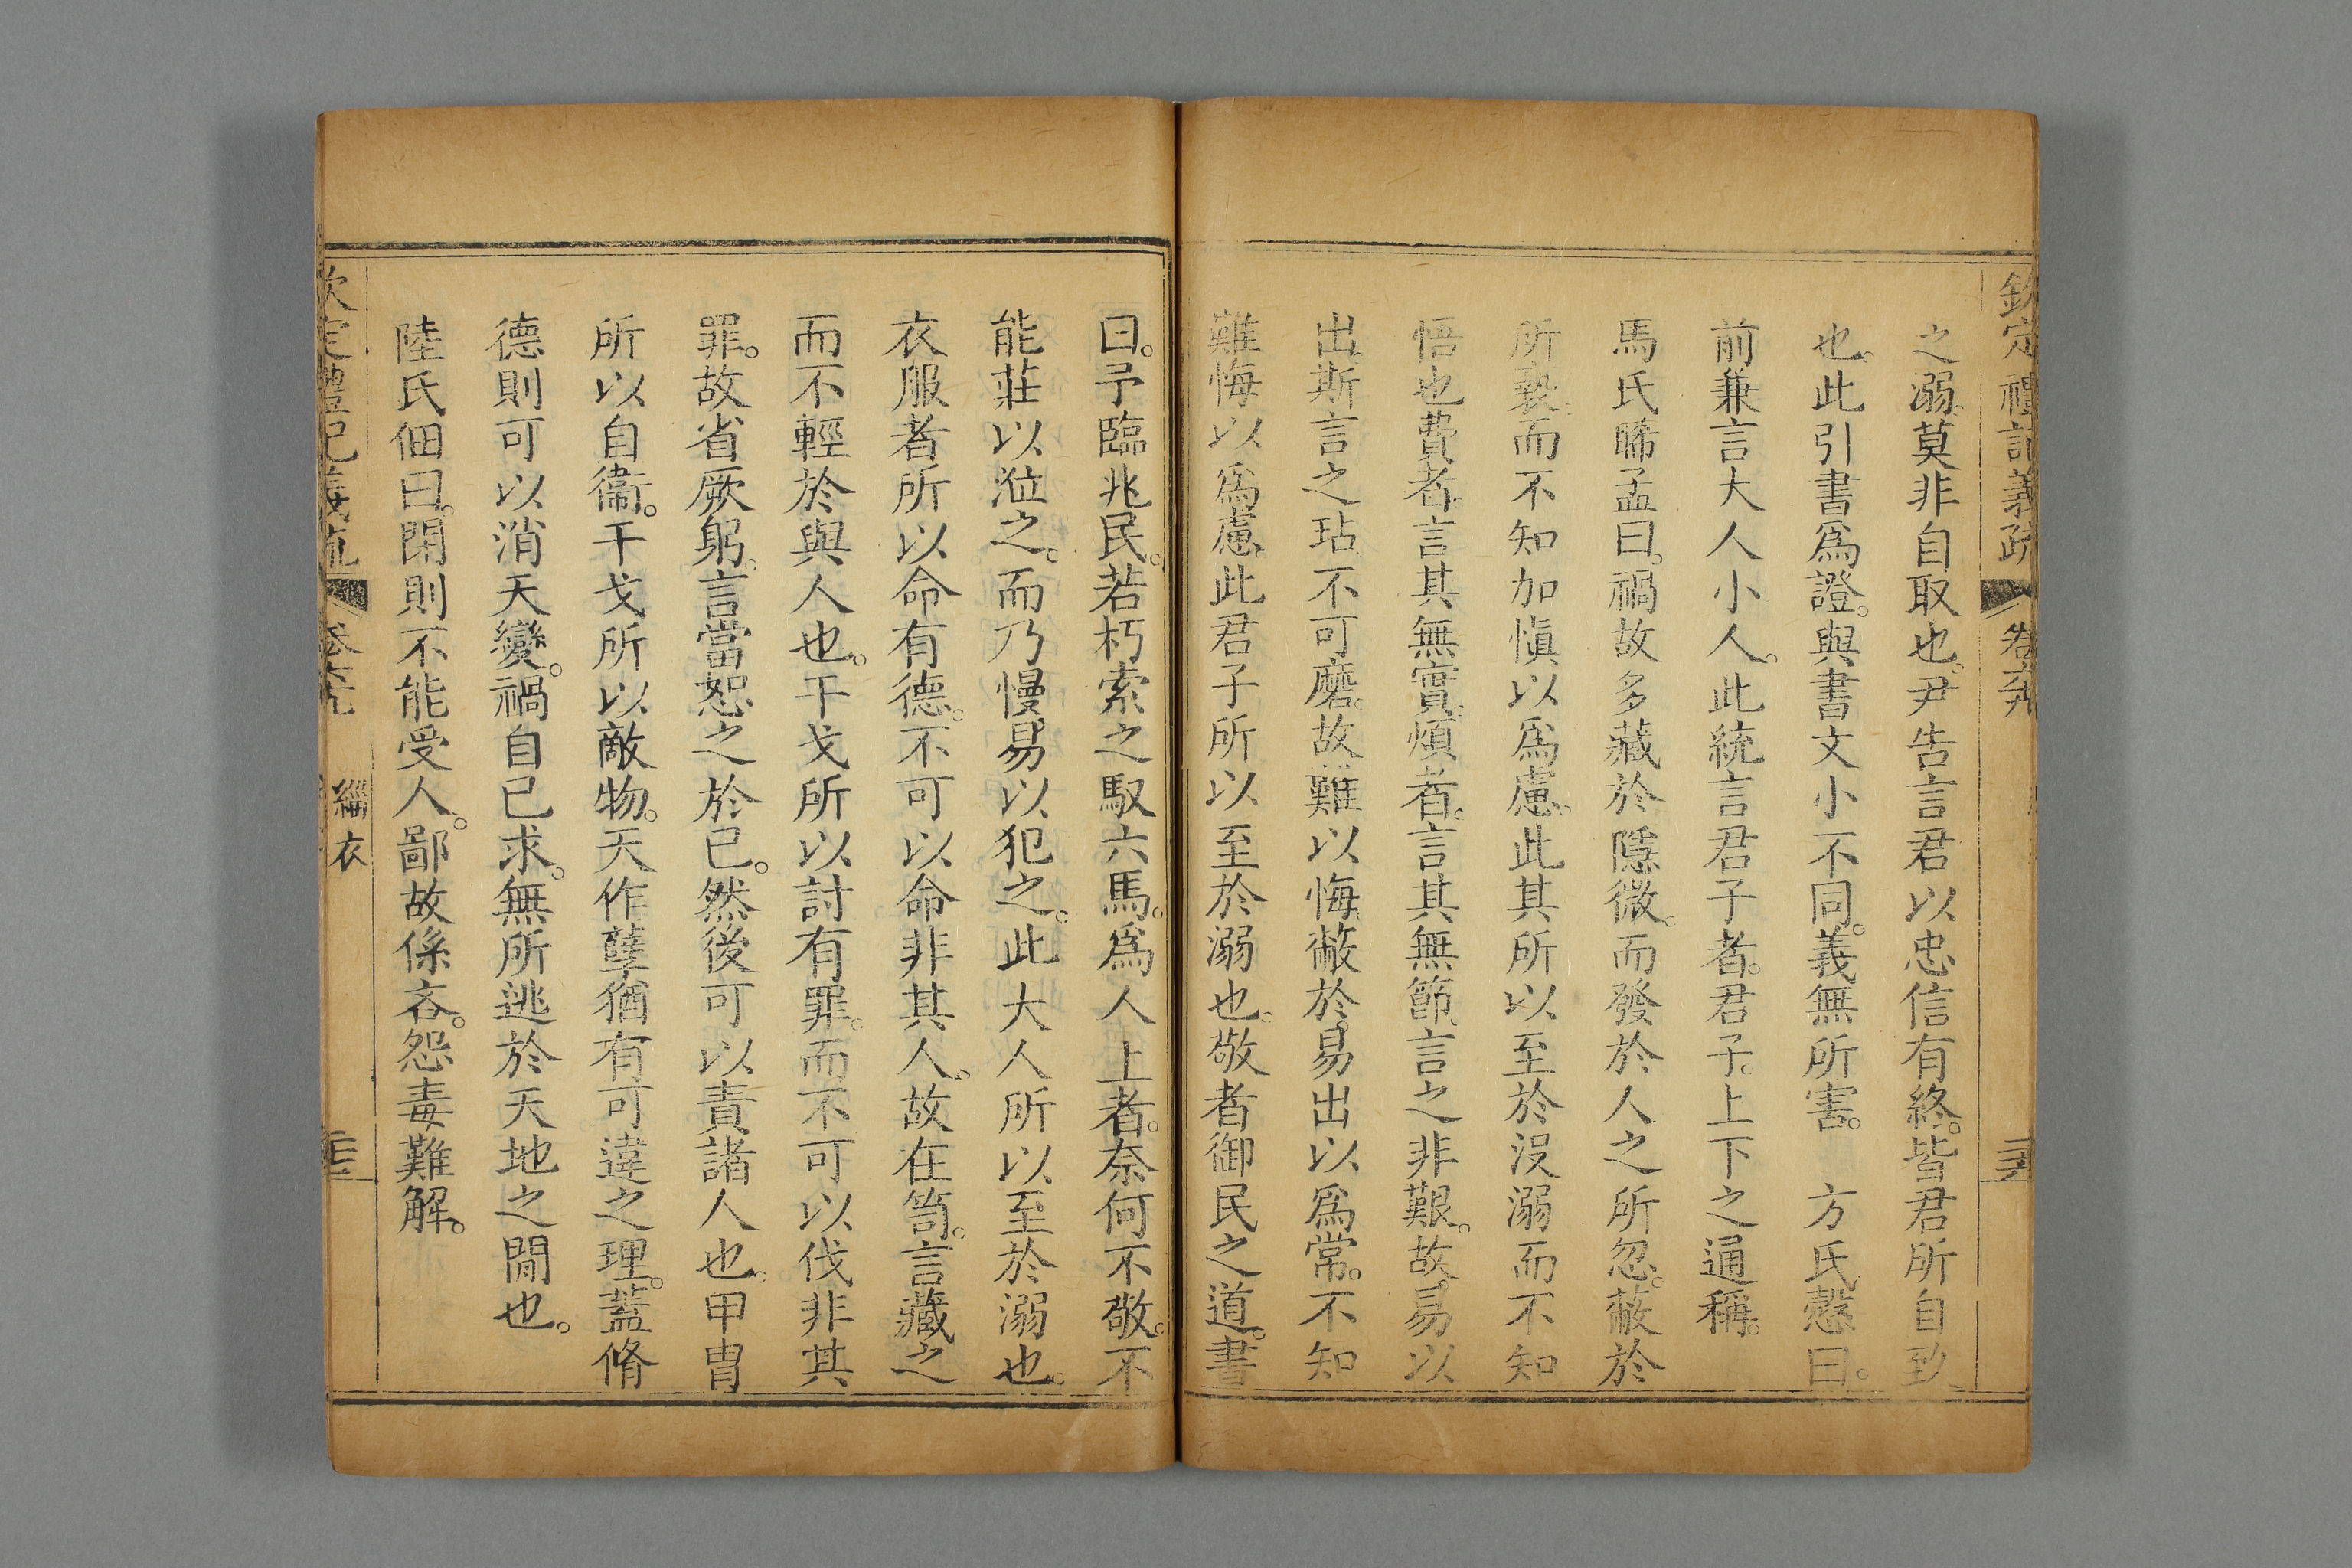 欽定禮記義疏 卷六九
之溺。莫非自取也。尹吿言君以忠信有終。皆君所自致
也。此引書爲證。與書文小不同。義無所害。 方氏慤曰。
前兼言大人小人。此統言君子者。君子。上下之通稱。
馬氏睎孟曰。禍故多藏於隱微。而發於人之所忽。蔽於
所褻而不知加愼以爲慮。此其所以至於没溺而不知
悟也費者。言其無實。煩者。言其無節。言之非艱。故易以
出。斯言之玷不可磨。故難以悔。蔽於易出以爲常。不知
難悔以爲慮。此君子所以至於溺也。敬者御民之道。書
曰。予臨兆民。若朽索之馭六馬。爲人上者。奈何不敬。不
能莊以涖之。而乃慢易以犯之。此大人所以至於溺也。
衣服者所以命有德。不可以命非其人。故在笥。言藏之
而不輕於與人也。干戈所以討有罪。而不可以伐非其
罪。故省厥躬。言當恕之於已。然後可以責諸人也。甲胄
所以自衞。干戈所以敵物。天作孽猶有可違之理。蓋脩
德則可以消天變。禍自已求。無所逃於天地之閒也。
陸氏佃曰。閉則不能受人。鄙故係吝。怨毒難解。
欽定禮記義疏 卷六九 緇衣